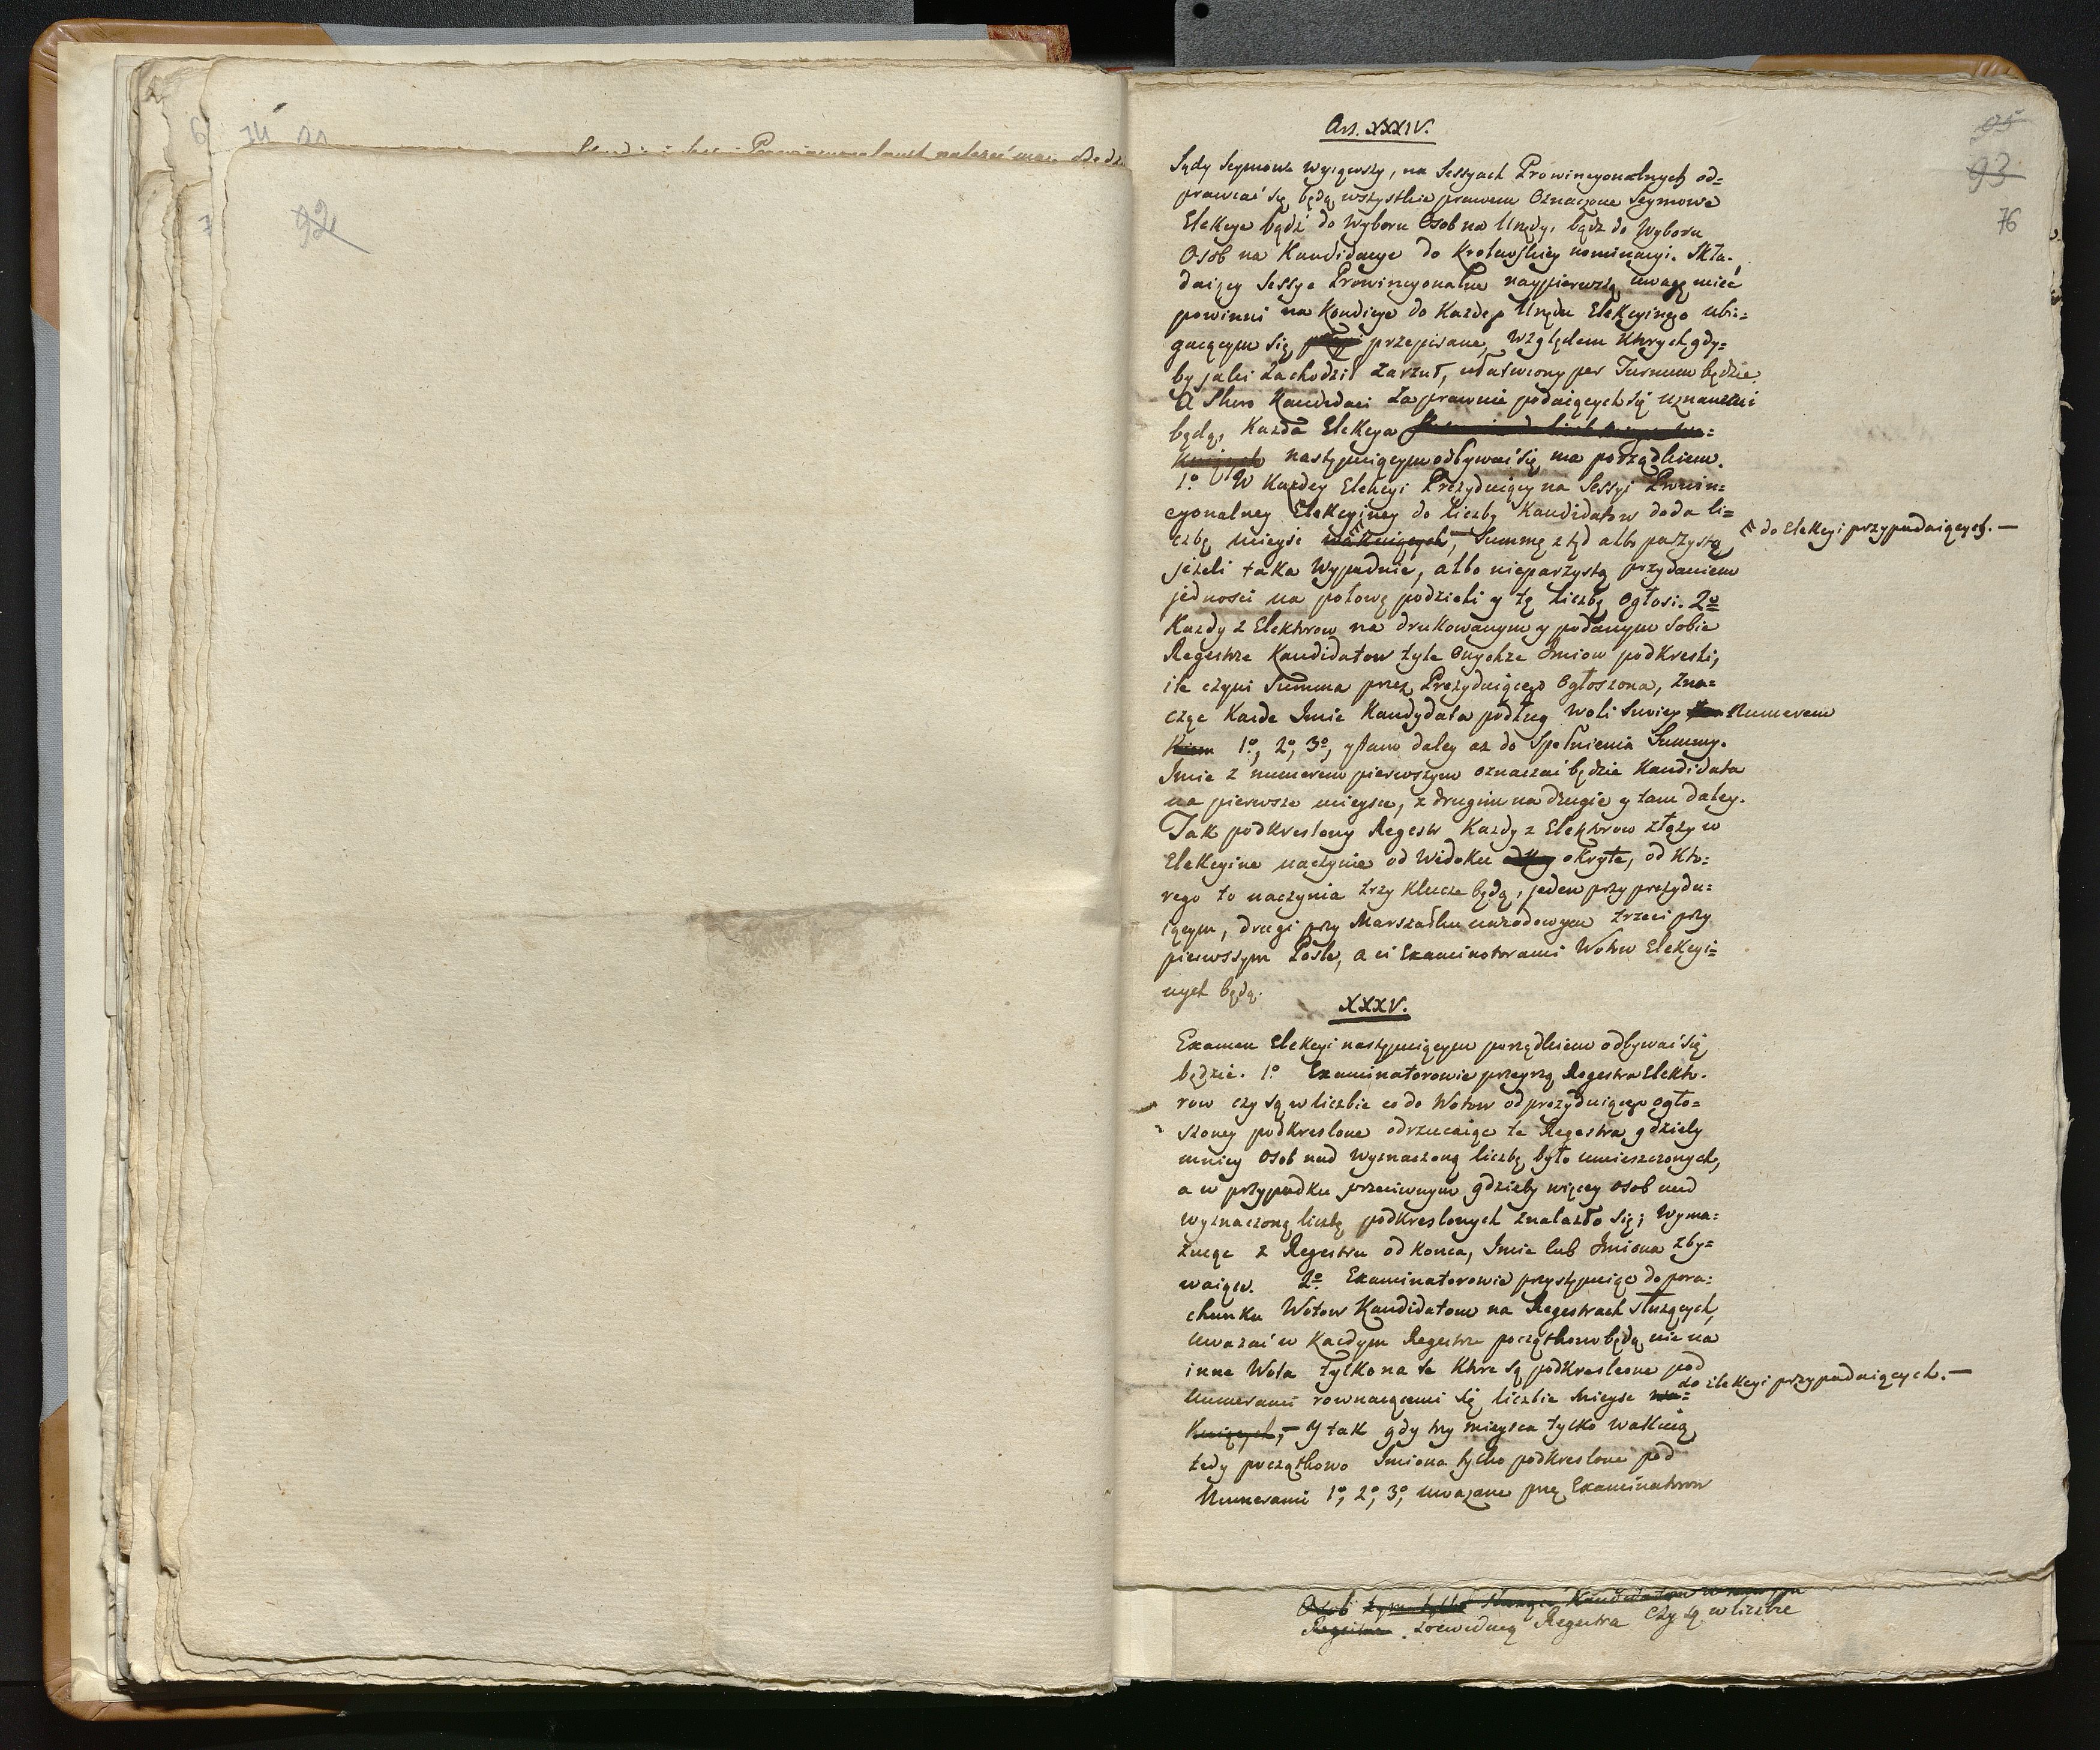 92
Art. XXXIV.
95
93
76
Sądy Seymowe wyiąwszy, na Sessyach Prowincyonalnych od=
prawiać się będą wszystkie prawem Oznaczone Seymowe
Elekcye bądź do Wyboru Osob na Urzędy, bądz do Wyboru
Osob na Kandidacye do Krolewskiey nominacyi. Skła-
daiący Sessye Prowincyonalne naypierwszą uwagę mieć
powinni na Kondicye do Każdego Urzędu Elekcyinego ubie=
gaiącym się przepisane, Względem Ktorych gdy=
by jaki Zachodził Zarzut, ułatwiony per Turnum będzie.
A Skoro Kandidaci Za prawnie podaiących się uznanemi
będą, Każda Elekcya
nastęmpuiącym odbywać się ma porządkiem.
1º W Każdey Elekcyi Prezyduiący na Sessyi Prowin=
cyonalney Elekcyiney do liczby Kandidatow doda li=
czbę mieysc wakuiących, Summę ztąd albo parzystą
do Elekcyi przypadaiących. —
jeżeli taka Wypadnie, albo nieparzystą przydaniem
jedności na połowę podzieli y tę liczbę Ogłosi. 2º
Kazdy z Elektorow na drukowanym y podanym Sobie
Regestrze Kandidatow tyle Onychże Imion podkreśli,
ile czyni Summa przez Prezyduiącego Ogłoszona, Zna=
cząc Każde Imie Kandydata podług woli Swoiey Numerem
1º, 2º, 3º, y tam daley az do Spełnienia Summy.
Imie z numerem pierwszym oznaczać będzie Kandidata
na pierwsze mieysce, z drugim na drugie y tam daley.
Tak podkreslony Regestr Kazdy z Elektorow złoży w
Elekcyine naczynie od Widoku okryte, od Kto=
rego to naczynia trzy Klucze będą, jeden przy prezydu=
iącym, drugi przy Marszałku narodowym trzeci przy
pierwszym Pośle, a ci Examinatorami Wotow Elekcyi=
nych będą.
XXXV.
Examen Elekcyi nastęmpuiącym porządkiem odbywać się
będzie. 1º Examinatorowie przeyrzą Regestra Elekto-
row czy są w liczbie co do Wotow od prezyduiącego ogło=
szoney podkreslone odrzucaiąc te Regestra gdzieby
mniey Osob nad wyznaczoną liczbę było umieszczonych,
a w przypadku przeciwnym gdzieby więcey osob nad
wyznaczoną liczbę podkreslonych znalazło się, wyma=
zuiąc z Regestru od Konca, Imie lub Imiona zby=
waiące. 2º Examinatorowie przystępuiąc do pora=
chunku Wotow Kandidatom na Regestrach służących,
Uważać w każdym Regestrze początkowo będą nie na
inne Wota tylko na te Ktore są podkreslone pod
Numerami rownaiącemi się liczbie mieysc wa=
do Elekcyi przypadaiących. —
kuiących, — Y tak gdy trzy mieysca tylko Wakuią
tedy początkowo Imiona tylko podkreslone pod
Numerami 1º, 2º, 3º, uważane przez Examinatorow
Osob tym tylko Kandidatom
Regestra. zrewiduią Regestra Czy są w liczbie